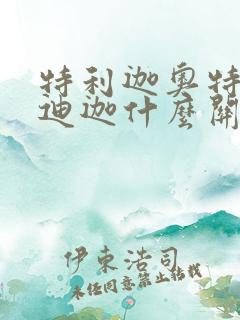 特利迦奥特
迪迦什麽關
伊東浩司
未任同意禁止転載